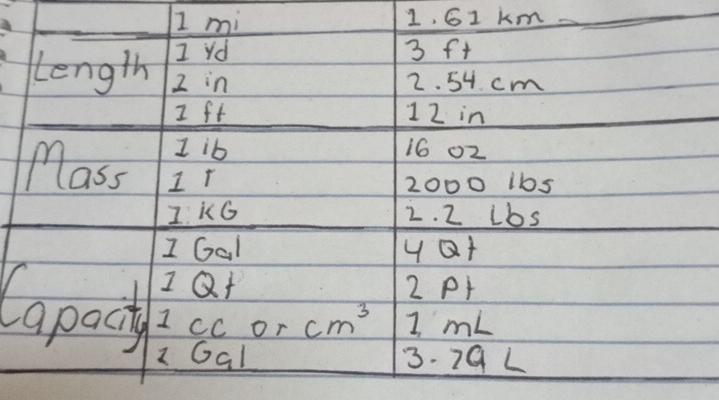 1 mi 1.61 km
Length 1 yd 3 ft
1 in 2.54 cm
1 ft 12 in
Mass 1 lb 16 oz
1 T 2000 lbs
1 KG 2.2 Lbs
1 Gal 4 Qt
1 Qt 2 Pt
Capacity 1 cc or cm³ 1 mL
1 Gal 3.79 L